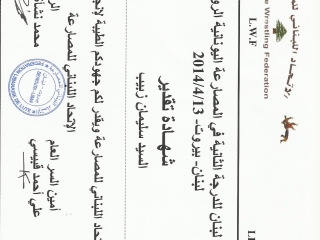 الاتحاد اللبناني للمصارعة
Wrestling Federation
L.W.F
لبنان للدرجة الثانية في المصارعة اليونانية الرو
لبنان- بيروت- 2014/4/13
شهادة تقدير
السيد سليمان زبيب
تحاد اللبناني للمصارعة ويقدر لكم جهودكم الطيبة لإنجا
الإتحاد اللبناني للمصارعة
أمين السر العام
علي أحمد قبيسي
الر
محمد نشأت